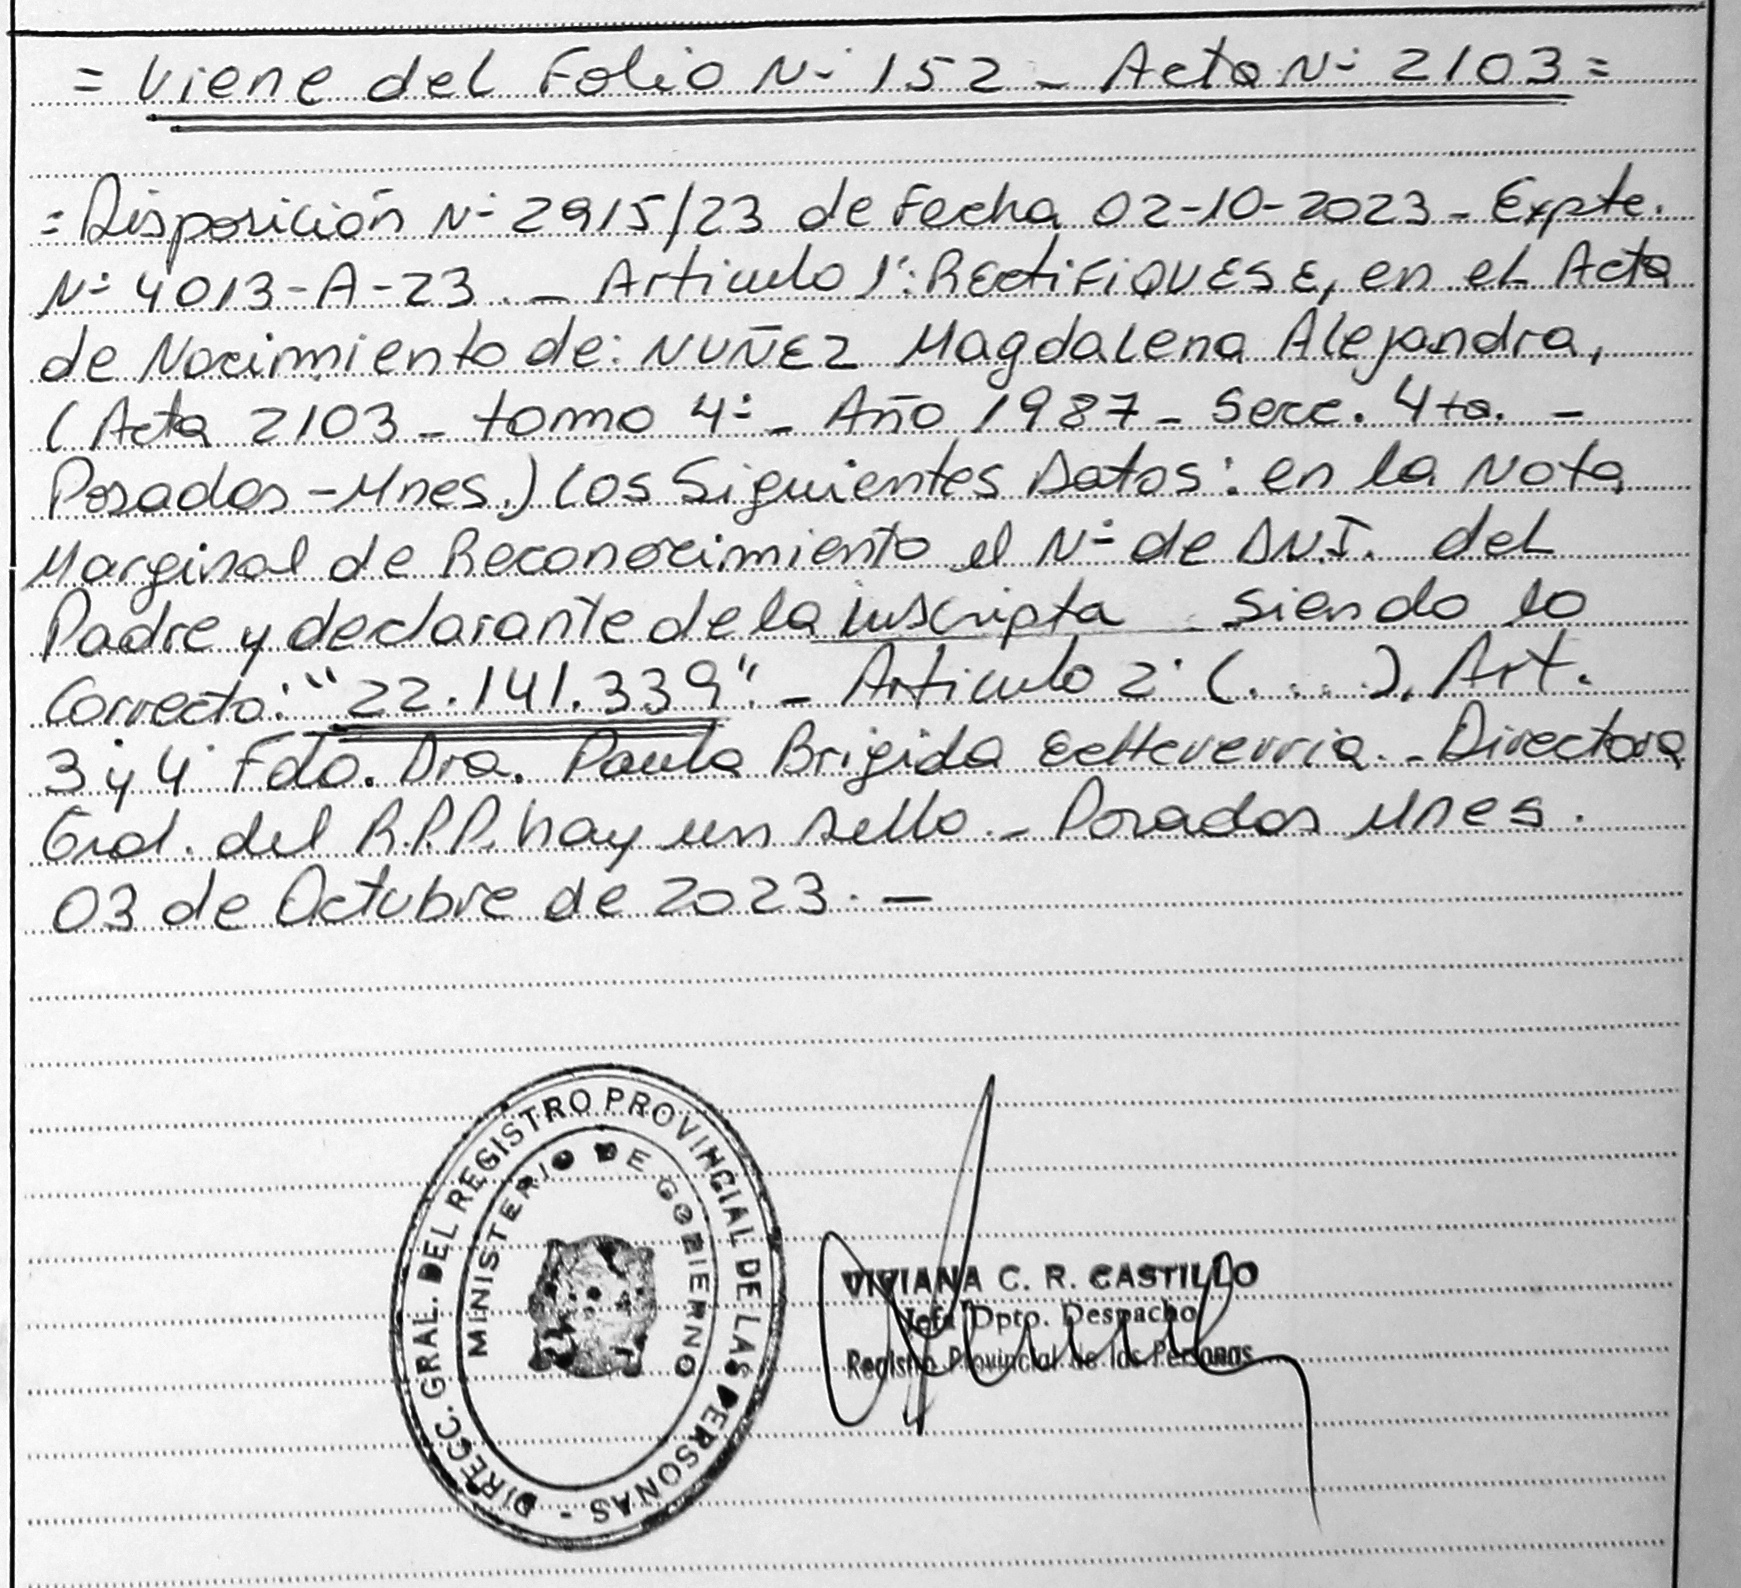 = Viene del Folio Nº 152 - Acta Nº 2103 =
= Disposición Nº 2915/23 de Fecha 02-10-2023 - Expte.
Nº 4013-A-23. - Articulo 1º: RECtiFiQUESE, en el Acta
de Nacimiento de: NUÑEZ Magdalena Alejandra,
(Acta 2103 - tomo 4º - Año 1987 - Secc. 4ta. -
Posadas - Mnes.) los Siguientes Datos: en la Nota
Marginal de Reconocimiento el Nº de D.N.I. del
Padre y declarante de la inscripta siendo lo
Correcto: "22.141.339". - Articulo 2º (....). Art.
3 y 4 Fdo. Dra. Paula Brigida Echeverria. - Directora
Gral. del R.P.P. hay un sello. - Posadas Mnes.
03 de Octubre de 2023. -
DIRECC. GRAL. DEL REGISTRO PROVINCIAL DE LAS PERSONAS -
MINISTERIO DE GOBIERNO
VIVIANA C. R. CASTILLO
Jefa Dpto. Despacho
Registro Provincial de las Personas